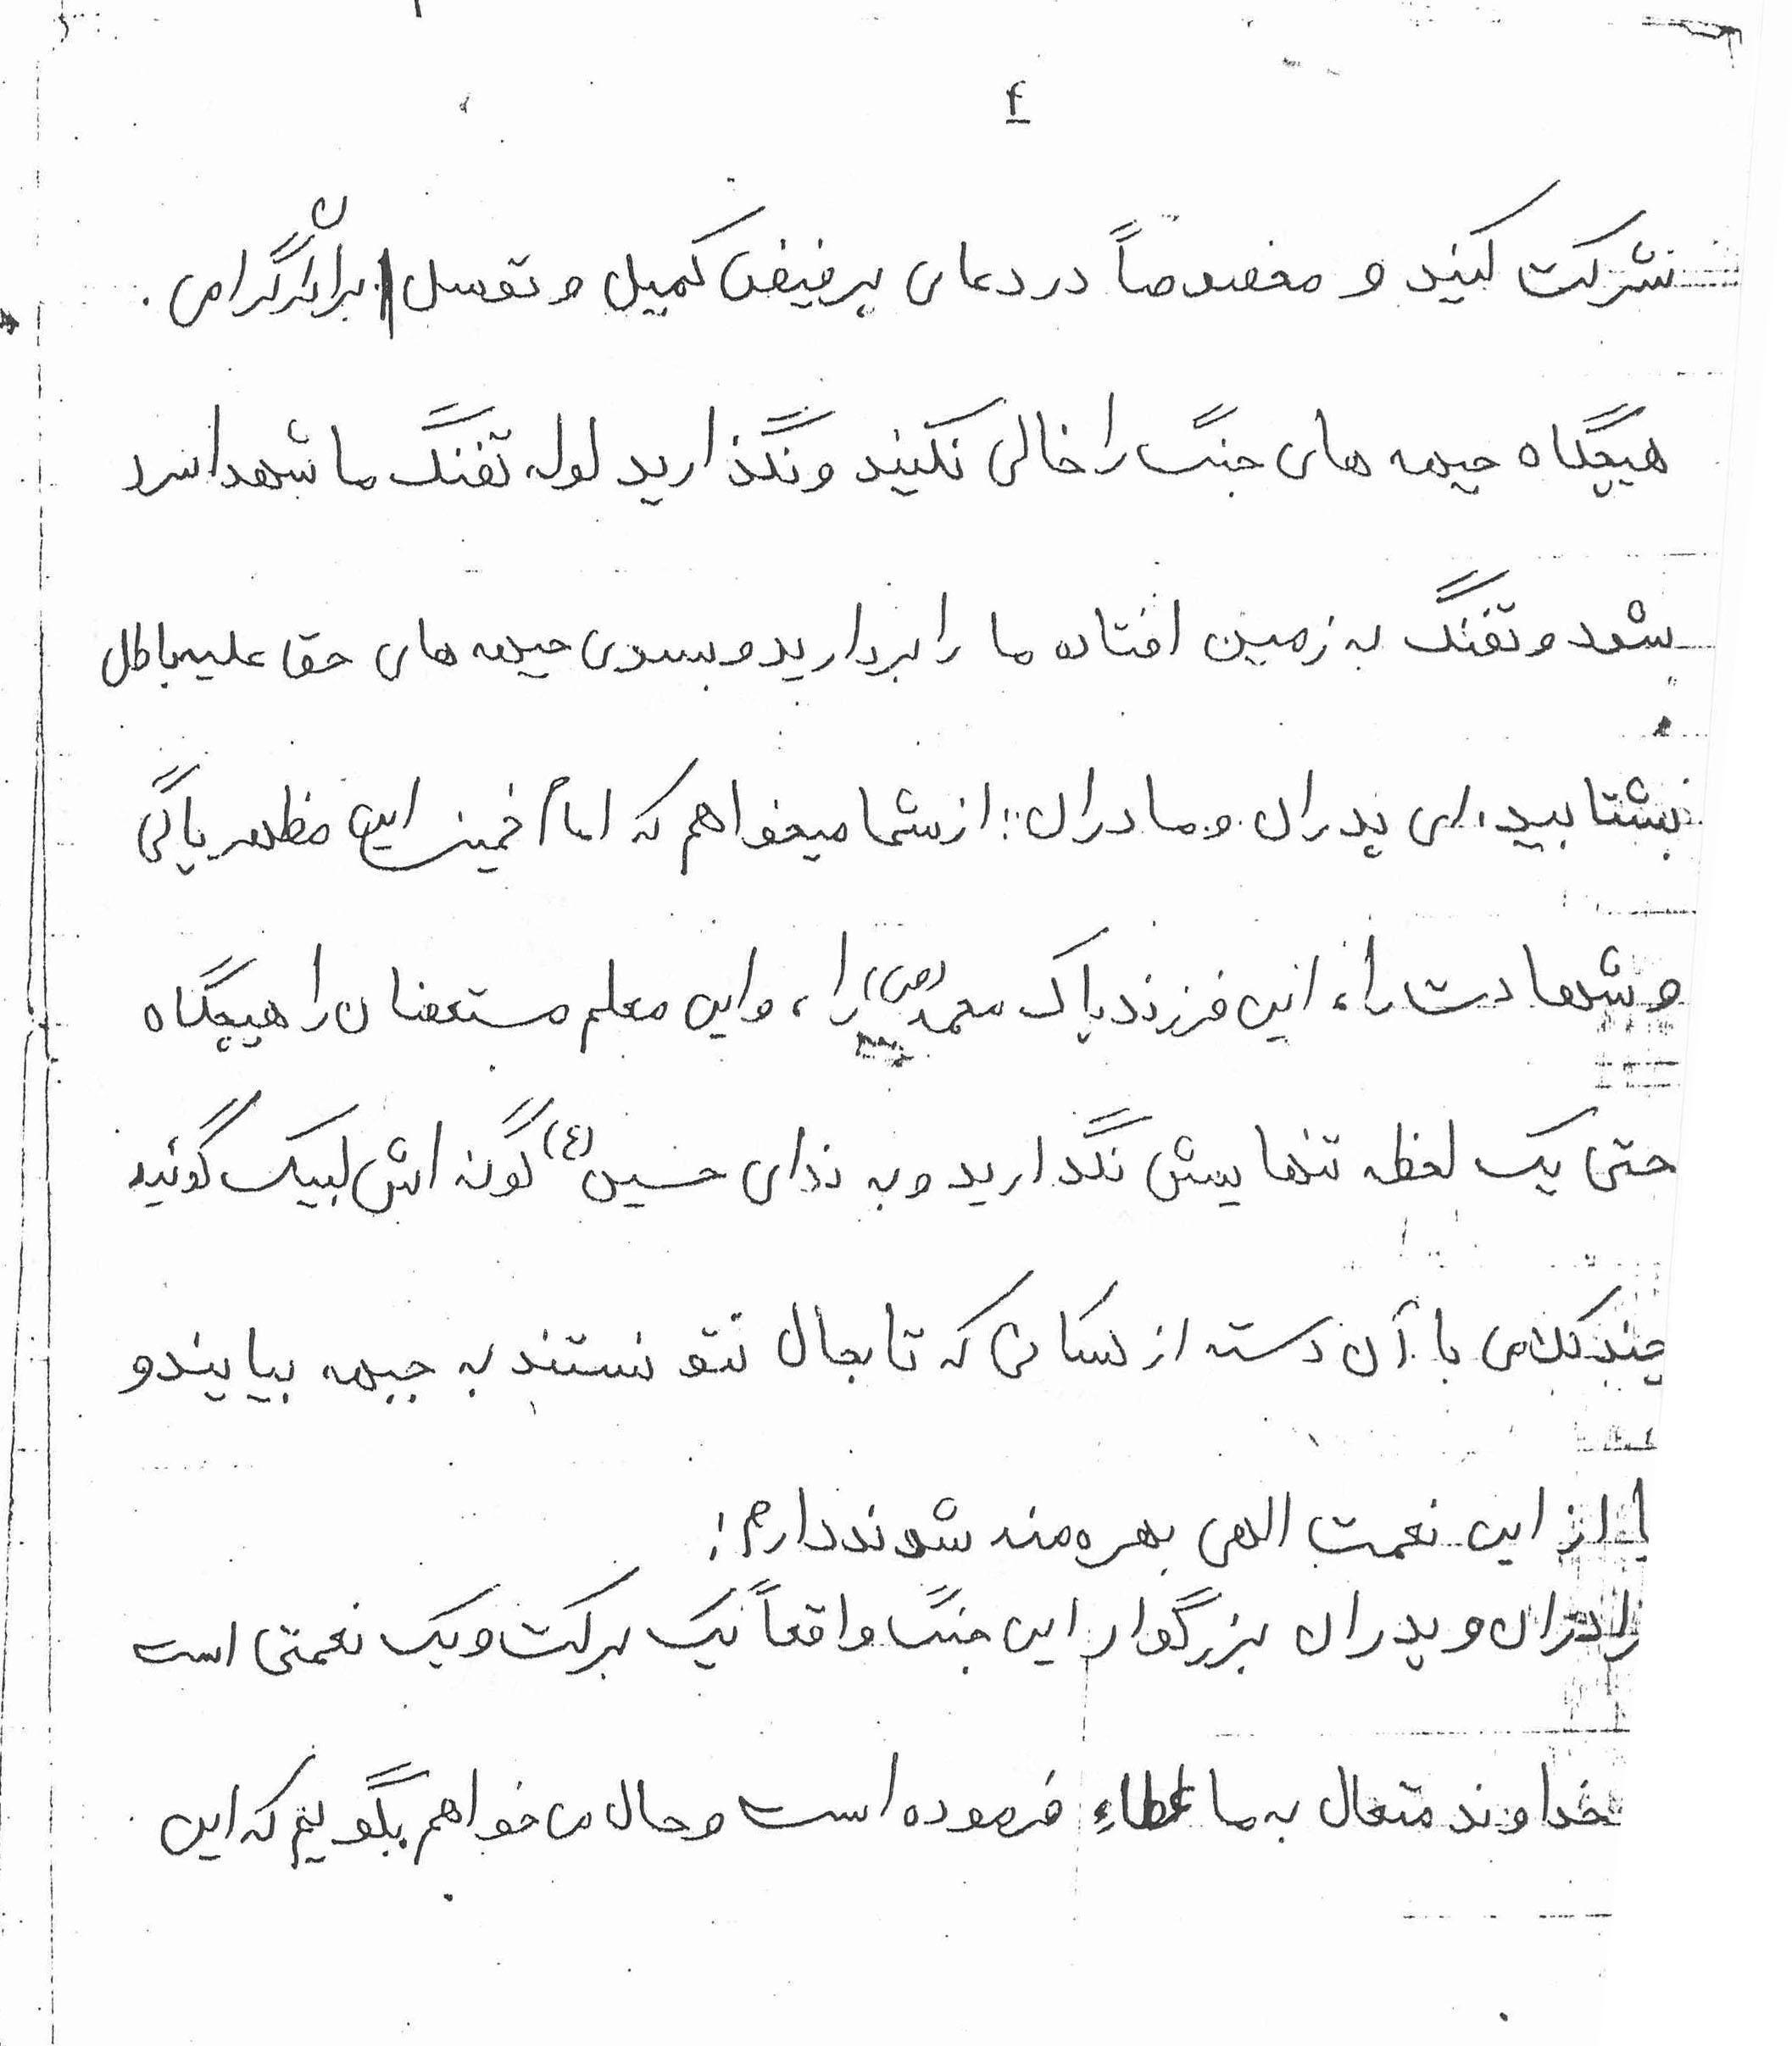 ۴
شرکت کنید و مخصوصاً در دعای پرفیض کمیل و توسل برادران گرامی .
هیچگاه جبهه های جنگ را خالی نکنید و نگذارید لوله تفنگ ما شهدا سرد
شود و تفنگ به زمین افتاده ما را بردارید و بسوی جبهه های حق علیه باطل
بشتابید. ای پدران و مادران : از شما میخواهم که امام خمینی این مظهر پاکی
و شهادت را، این فرزند پاک محمد (ص) را، و این معلم مستعضفان را هیچگاه
حتی یک لحظه تنهایش نگذارید و به ندای حسین (ع) گونه اش لبیک گوئید
چند کلامی با آن دسته از کسانی که تا بحال نتونستند به جبهه بیایند و
از این نعمت الهی بهره مند شوند دارم :
برادران و پدران بزرگوار این جنگ واقعاً یک برکت و یک نعمتی است
خداوند متعال به ما عطاءِ فرموده است و حال می خواهم بگویم که این